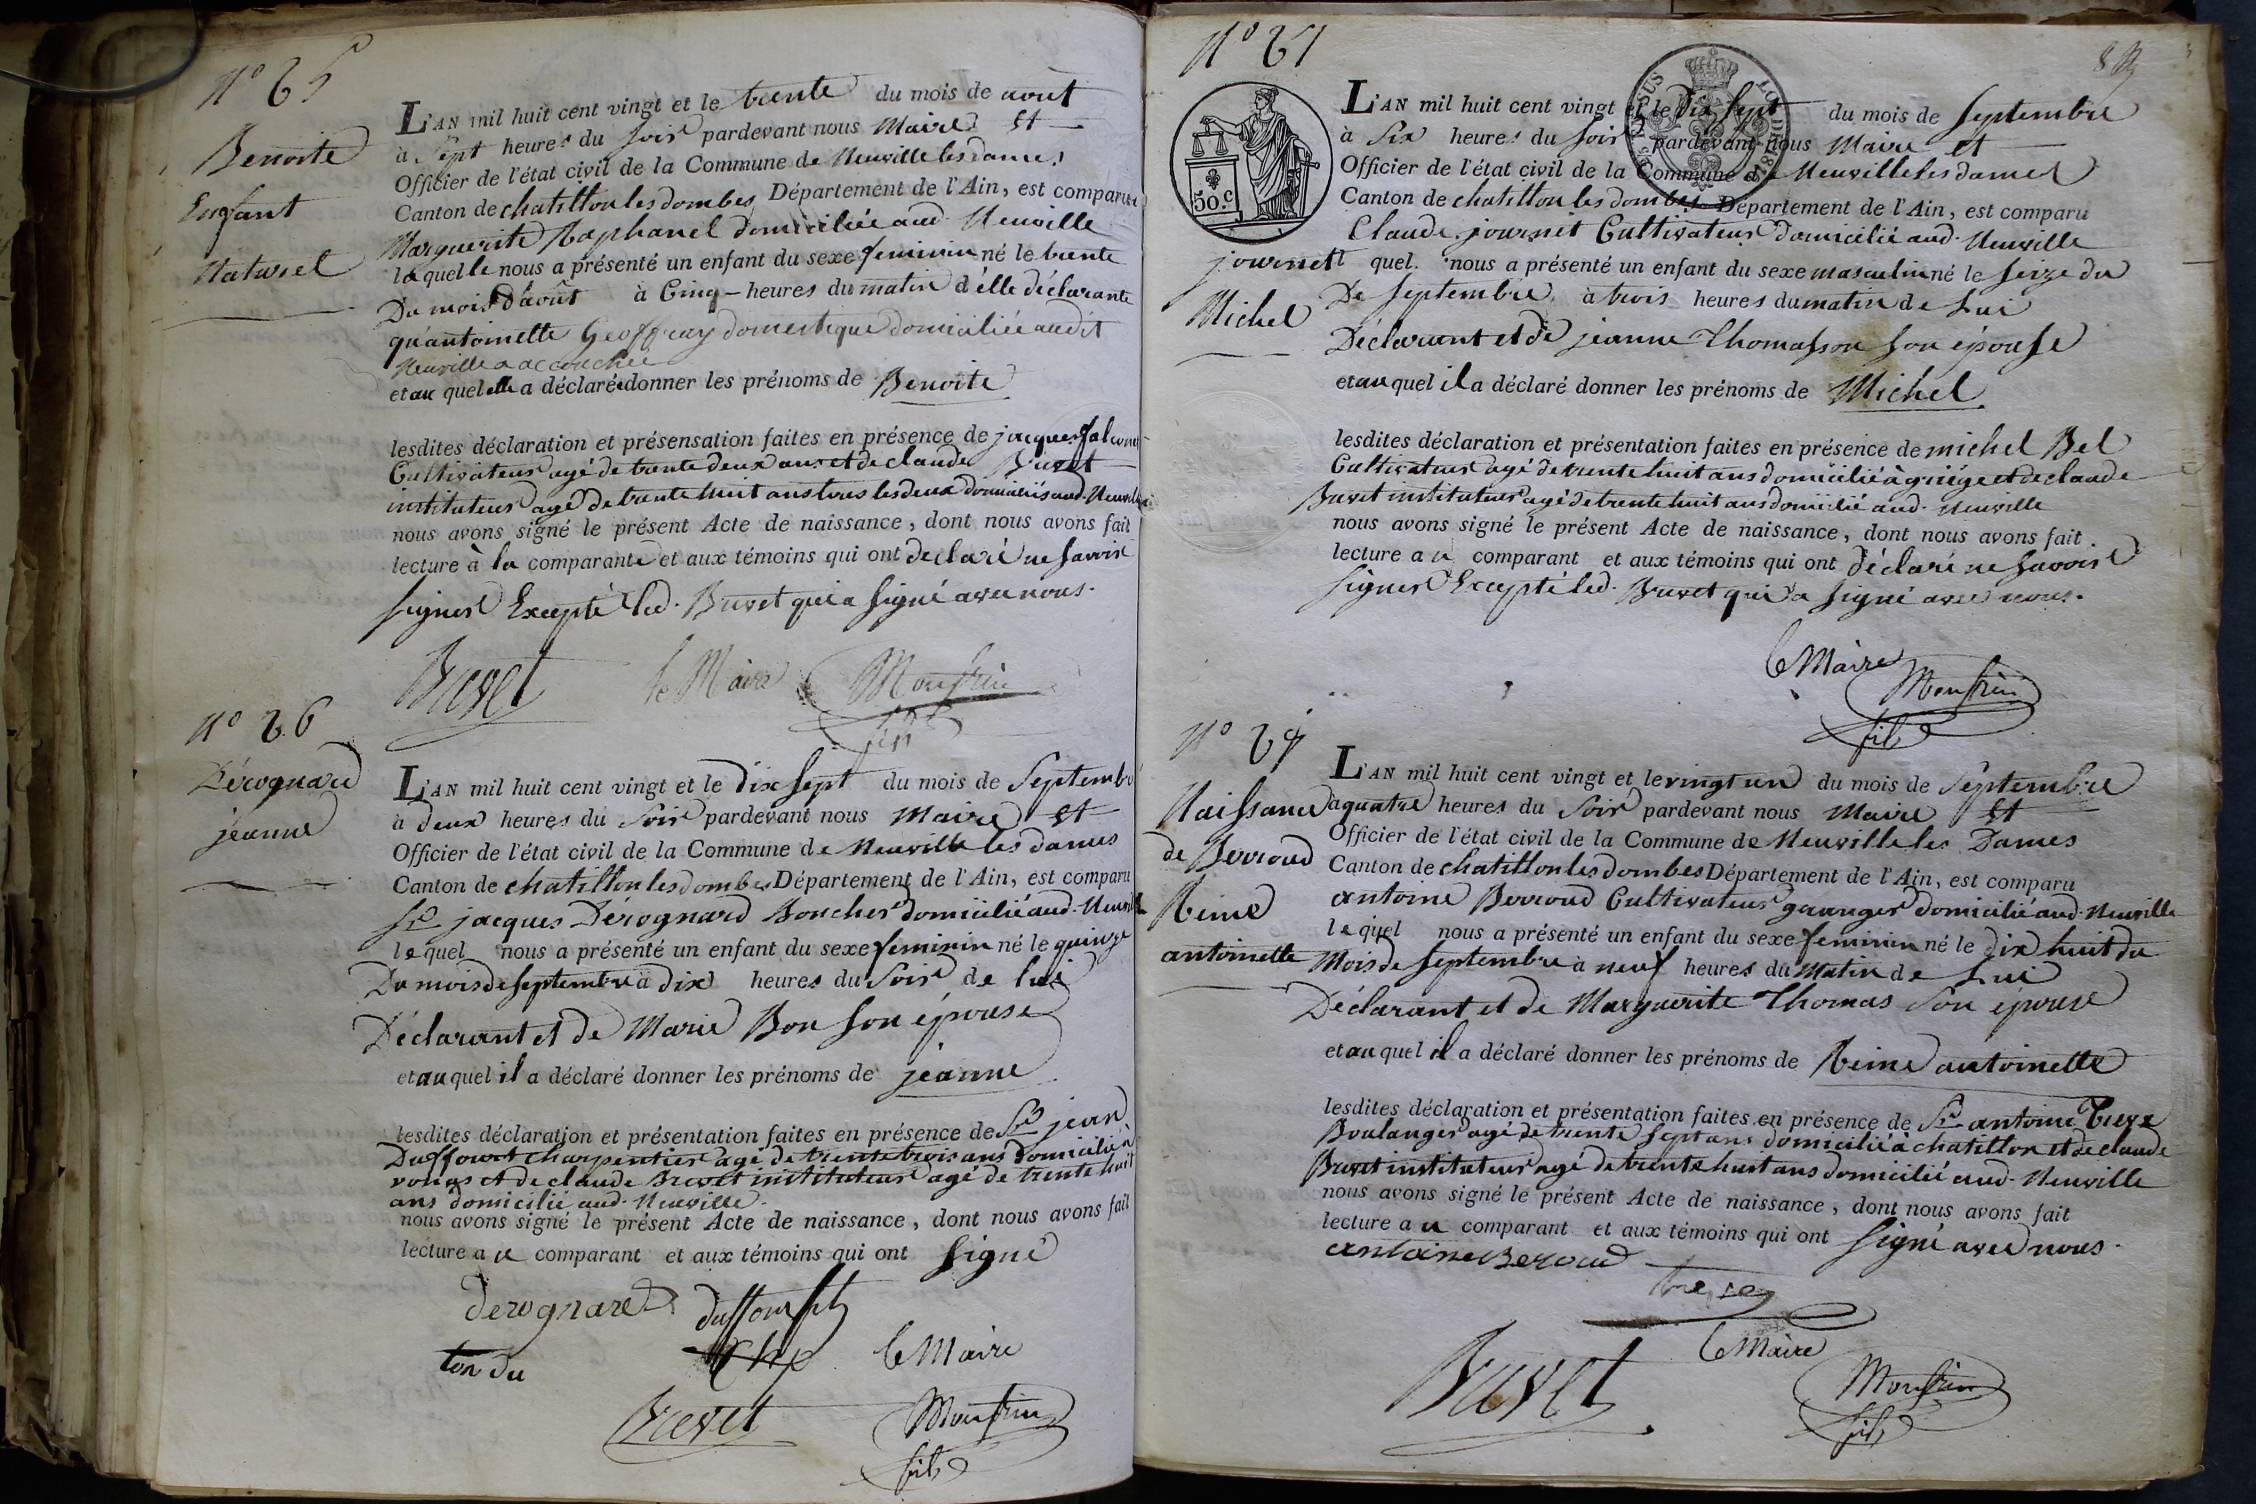 N° 25
Benoite
Enfant
Naturel
L'AN mil huit cent vingt et le trente du mois de août
à Sept heures du soir pardevant nous Maire Et
Officier de l'état civil de la Commune de Neuville les dames
Canton de chatillon les dombes Département de l'Ain, est comparue
Marguerite Raphanel domiciliée aud. Neuville
laquelle nous a présenté un enfant du sexe feminin né le trente
Du mois d'août à Cinq heures du matin d'élle déclarante
qu'antoinette Geoffray domestique domiciliée audit
Neuville a accouchée
et au quel elle a déclarée donner les prénoms de Benoite
lesdites déclaration et présensation faites en présence de jacques
Cultivateur agé de trente deux ans et de claude Buvet
instituteur agé de trente huit ans tous les deux domiciliés aud. Neuville
nous avons signé le présent Acte de naissance, dont nous avons fait
lecture à la comparante et aux témoins qui ont declaré ne savoir
signer Excepté led. Buvet qui a signé avec nous.
Buvet le Maire Monfrin
fils
N° 26
Dérognard
jeanne
L'AN mil huit cent vingt et le dix sept du mois de Septembre
à deux heures du Soir pardevant nous Maire Et
Officier de l'état civil de la Commune de Neuville les dames
Canton de chatillon les dombes Département de l'Ain, est comparu
Sr jacques Dérognard Boucher domicilié aud. Neuville
lequel nous a présenté un enfant du sexe feminin né le quinze
Du mois de septembre à dix heures du Soir de lui
Déclarant et de Marie Bon son épouse
et au quel il a déclaré donner les prénoms de jeanne
lesdites déclaration et présentation faites en présence de Sr jean
Duffouret charpentier agé de trente trois ans domicilié à
vonas et de claude Buvet instituteur agé de trente huit
ans domicilié aud. Neuville.
nous avons signé le présent Acte de naissance, dont nous avons fait
lecture au comparant et aux témoins qui ont Signé
derognard
ton du
le Maire
Buvet Monfrin
fils
N° 27
50.c
journet
Michel
L'AN mil huit cent vingt et le dix sept du mois de Septembre
à Six heures du soir pardevant nous Maire et
Officier de l'état civil de la Commune de Neuville les dames
Canton de chatillon les dombes Département de l'Ain, est comparu
Claude journet Cultivateur domicilié aud. Neuville
quel nous a présenté un enfant du sexe masculin né le seize du
De septembre à trois heures du matin de Lui
Déclarant et de jeanne Thomasson son épouse
et au quel il a déclaré donner les prénoms de Michel
lesdites déclaration et présentation faites en présence de michel Bel
Cultivateur agé de trente huit ans domicilié à griége et de claude
Buvet instituteur agé de trente huit ans domicilié aud. Neuville
nous avons signé le présent Acte de naissance, dont nous avons fait
lecture au comparant et aux témoins qui ont déclaré ne savoir
signer Excepté led. Buvet qui a signé avec nous.
le Maire
Monfrin
fils
Naissance
de Berroud
Reine
antoinette
L'AN mil huit cent vingt et le vingt un du mois de Septembre
à quatre heures du Soir pardevant nous Maire Et
Officier de l'état civil de la Commune de Neuville les Dames
Canton de chatillon les dombes Département de l'Ain, est comparu
antoine Berroud Cultivateur granger domicilié aud. Neuville
lequel nous a présenté un enfant du sexe feminin né le dix huit du
Mois de septembre à neuf heures du Matin de Lui
Déclarant et de Marguerite Thomas Son épouse
et au quel il a déclaré donner les prénoms de Reine antoinette
lesdites déclaration et présentation faites en présence de Sr antoine
Boulanger agé de trente sept ans domicilié à chatillon et de claude
Buvet instituteur agé de trente huit ans domicilié aud. Neuville
nous avons signé le présent Acte de naissance, dont nous avons fait
lecture au comparant et aux témoins qui ont signé avec nous.
antoine Beroud
le Maire
Buvet Monfrin
fils